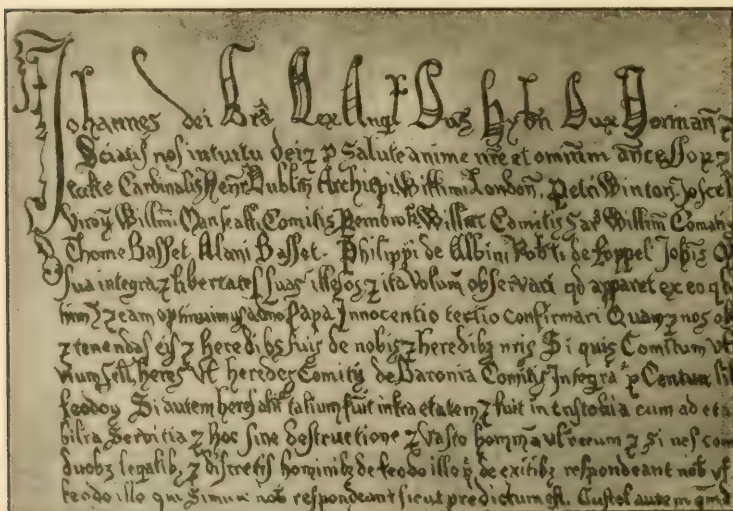 Johannes dei Gra Rex Angl Dns Hybn Dux Normann ⁊
Sciatis nos intuitu dei ⁊ p Salute anime nre et omnium ancessoꝝ ⁊
Cardinalis Henr Dublin Archiepi Willimi London. Petri Winton Joscel
Willmi Marscalli Comitis Pembrok Willmi Comitis Sar Willmi Comitis
Thome Basset. Alani Basset. Philippi de Albini Robti de Roppel Johis
sua integra ⁊ libertates suas illesas ⁊ ita volum observari qd apparet ex eo q
⁊ eam optinuimus a dno Papa Innocentio tertio confirmari Quam ⁊ nos ob
⁊ tenendas eis ⁊ heredibz suis de nobis ⁊ heredibz nris Si quis Comitum vl
heres vl heredes Comitis de Baronia Comitis Integra p Centum lib
feodoꝝ Si autem heres talium fuit infra etatem ⁊ fuit in custodia cum ad eta
bilia Servitia ⁊ hoc sine destructione ⁊ vasto hominum vl rerum ⁊ si nos com
duobz legalibz ⁊ discretis hominibz de feodo illo q de exitibz respondeant nob vl
feodo illo qui Simil nob respondeant sicut predictum est. Custos autem qmd